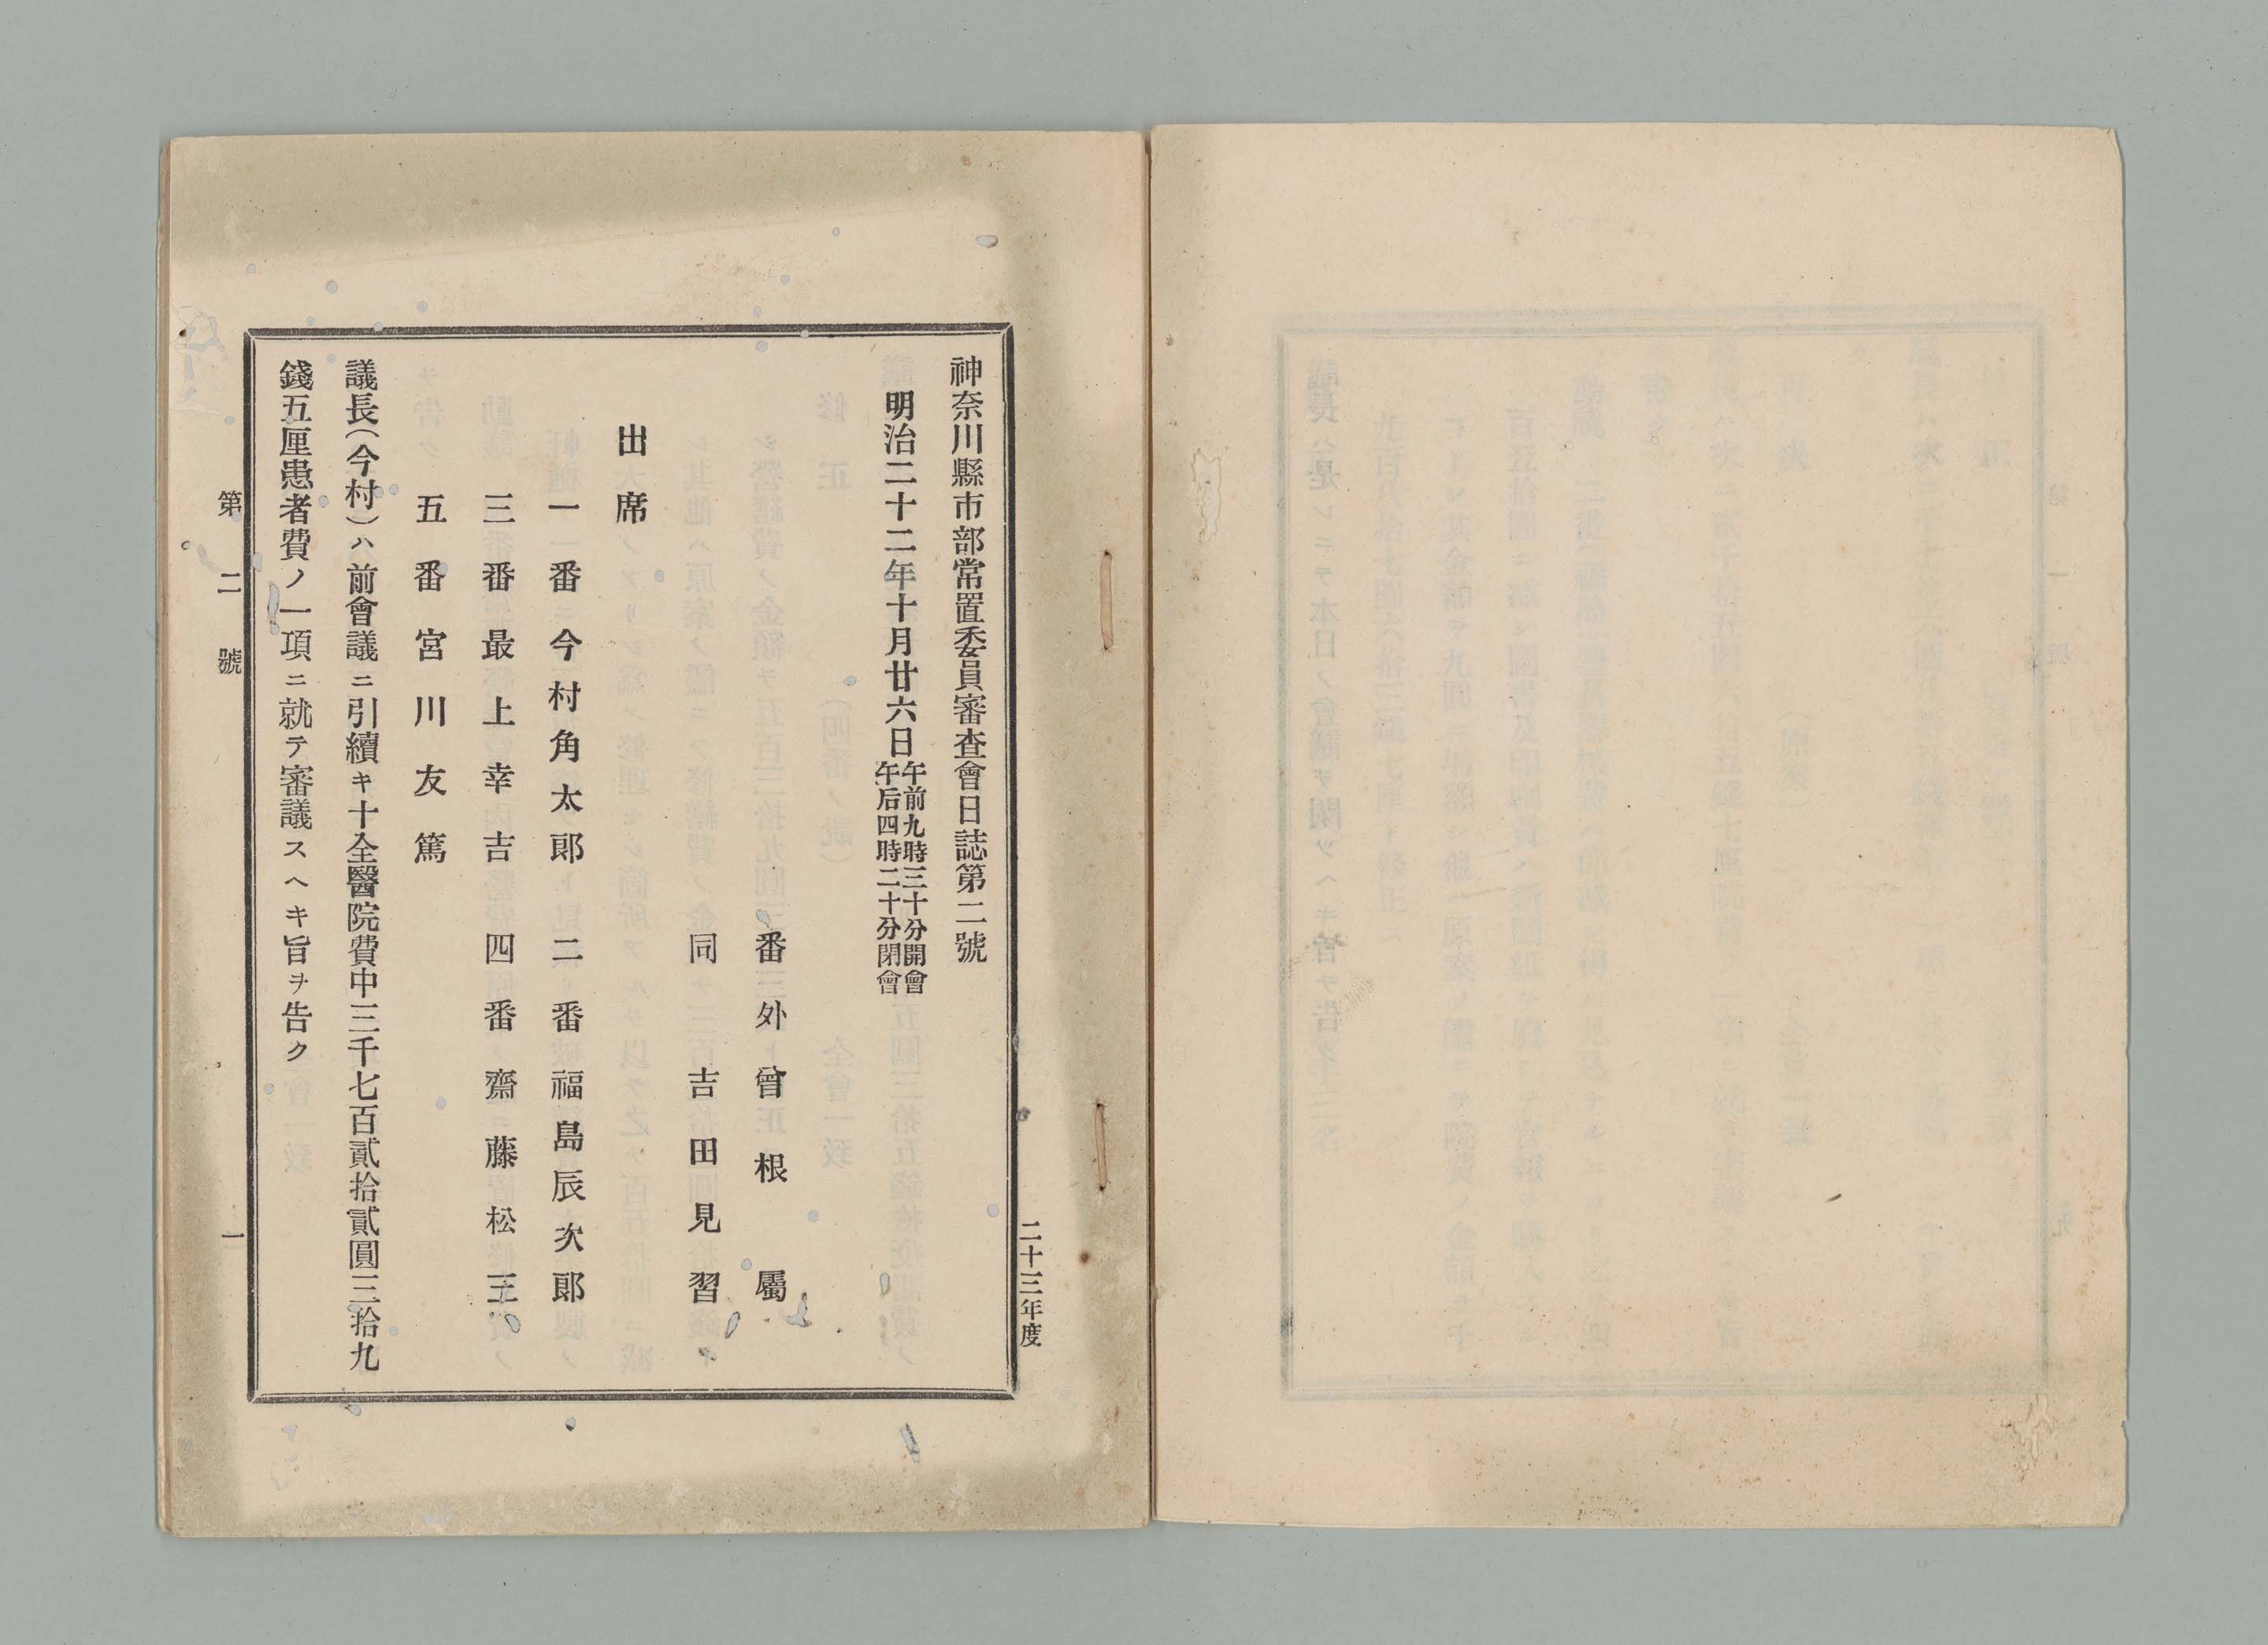 二十三年度
神奈川縣市部常置委員審査會日誌第二號
明治二十二年十月廿六日
午前九時三十分開會
午后四時二十分閉會
番外 曾根 屬
同 吉田見習
出席
一番 今村角太郎 二番 福島辰次郎
三番 最上幸吉 四番 齋藤松三
五番 宮川友篤
議長(今村)ハ前會議ニ引續キ十全醫院費中三千七百貳拾貳圓三拾九
錢五厘患者費ノ一項ニ就テ審議スヘキ旨ヲ告ク
第二號 一